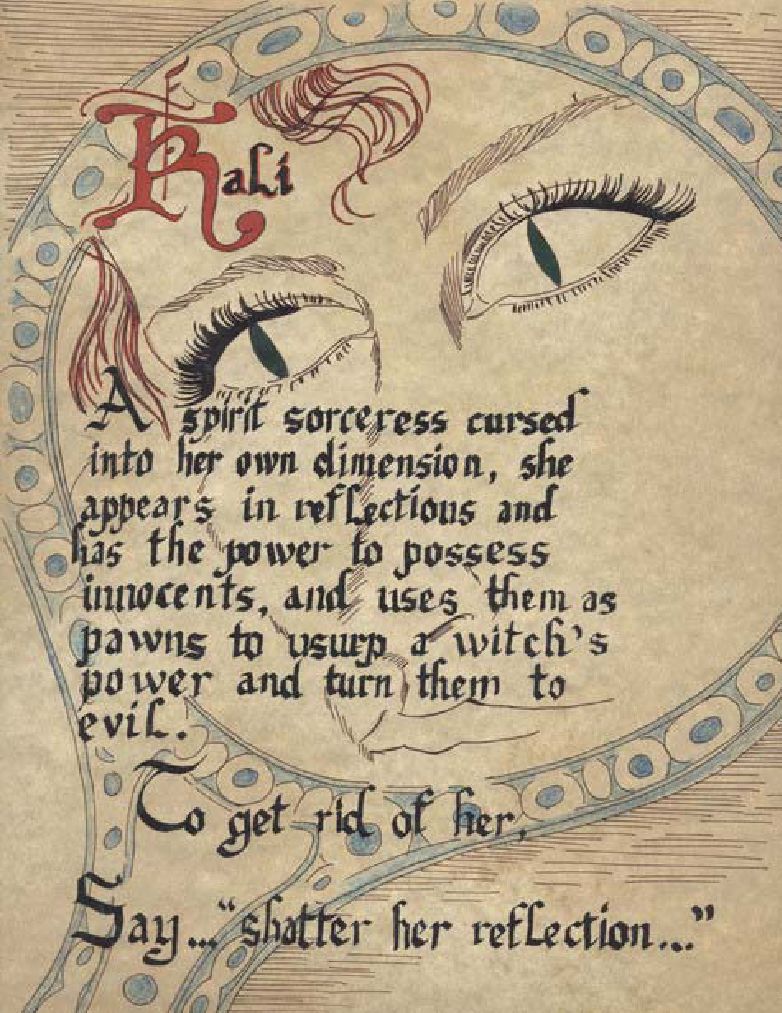 Kali
A spirit sorceress cursed
into her own dimension, she
appears in reflectious and
has the power to possess
innocents, and uses them as
pawns to usurp a witch's
power and turn them to
evil.
To get rid of her,
Say..."shatter her reflection..."